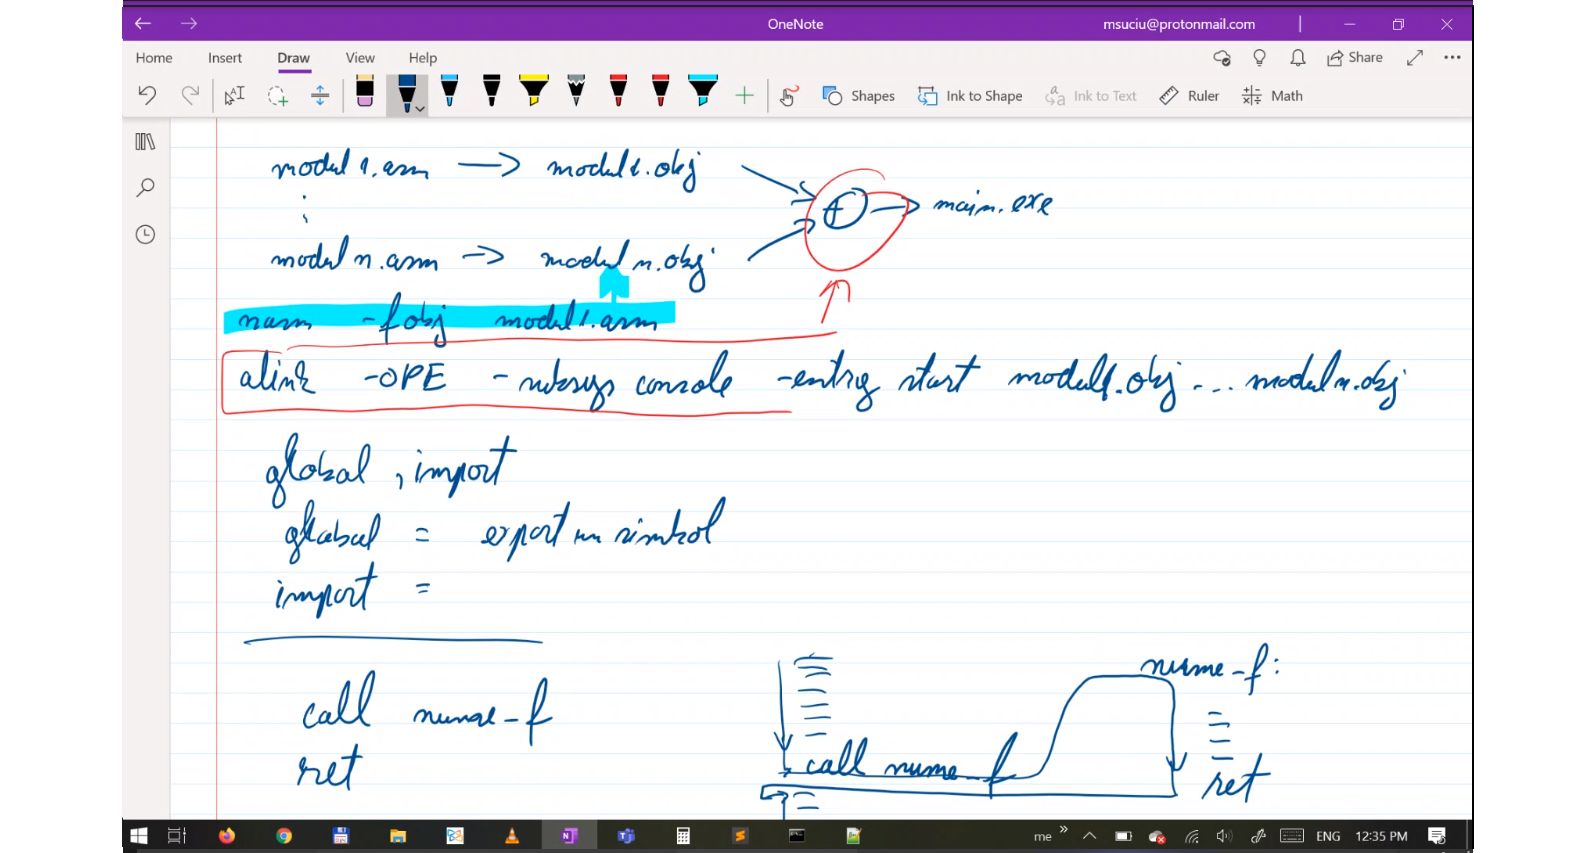 OneNote msuciu@protonmail.com
Home Insert Draw View Help Share
Shapes Ink to Shape Ink to Text Ruler Math
modul 1.asm → modul 1.obj
+ → main.exe
modul n.asm → modul n.obj
nasm -fobj modul 1.asm
alink -OPE -subsys console -entry start modul 1.obj ... modul n.obj
global, import
global = export un simbol
import =
nume_f:
call nume_f
call nume_f
ret
ret
me ENG 12:35 PM